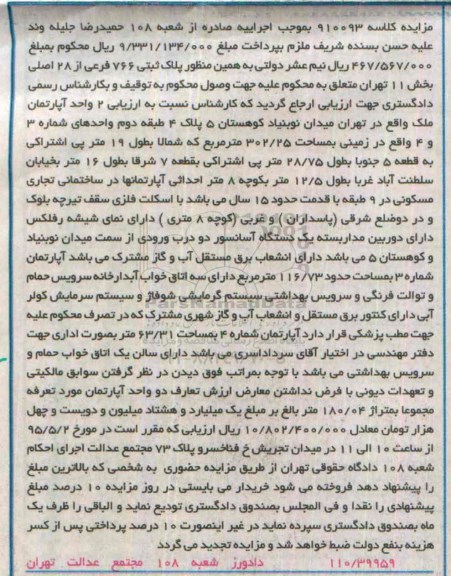 مزایده کلاسه ۹۱۰۰۹۳ بموجب اجراییه صادره از شعبه ۱۰۸ حمیدرضا جلیله وند
علیه حسن بسنده شریف ملزم بپرداخت مبلغ ۹/۳۳۱/۱۳۴/۰۰۰ ریال محکوم بمبلغ
۴۶۷/۵۶۷/۰۰۰ ریال نیم عشر دولتی به همین منظور پلاک ثبتی ۷۶۶ فرعی از ۲۸ اصلی
بخش ۱۱ تهران متعلق به محکوم علیه جهت وصول محکوم به توقیف و بکارشناس رسمی
دادگستری جهت ارزیابی ارجاع گردید که کارشناس نسبت به ارزیابی ۲ واحد آپارتمان
ملک واقع در تهران میدان نوبنیاد کوهستان ۵ پلاک ۴ طبقه دوم واحدهای شماره ۳
و ۴ واقع در زمینی بمساحت ۳۰۲/۲۵ مترمربع که شمالا بطول ۱۹ متر پی اشتراکی
به قطعه ۵ جنوبا بطول ۲۸/۷۵ متر پی اشتراکی بقطعه ۷ شرقا بطول ۱۶ متر بخیابان
سلطنت آباد غربا بطول ۱۲/۵ متر بکوچه ۸ متر احداثی آپارتمانها در ساختمانی تجاری
مسکونی در ۹ طبقه با قدمت حدود ۱۵ سال می باشد با اسکلت فلزی سقف تیرچه بلوک
و در دوضلع شرقی (پاسداران ) و غربی (کوچه ۸ متری ) دارای نمای شیشه رفلکس
دارای دوربین مداربسته یک دستگاه آسانسور دو درب ورودی از سمت میدان نوبنیاد
و کوهستان ۵ می باشد دارای انشعاب برق مستقل آب و گاز مشترک می باشد آپارتمان
شماره ۳ بمساحت حدود ۱۱۶/۷۳ مترمربع دارای سه اتاق خواب آبدارخانه سرویس حمام
و توالت فرنگی و سرویس بهداشتی سیستم گرمایشی شوفاژ و سیستم سرمایش کولر
آبی دارای کنتور برق مستقل و انشعاب آب و گاز شهری مشترک که در تصرف محکوم علیه
جهت مطب پزشکی قرار دارد آپارتمان شماره ۴ بمساحت ۶۳/۳۱ متر بصورت اداری جهت
دفتر مهندسی در اختیار آقای سرداداسری می باشد دارای سالن یک اتاق خواب حمام و
سرویس بهداشتی می باشد با توجه بمراتب فوق دیدن در نظر گرفتن سوابق مالکیتی
و تعهدات دیونی با فرض نداشتن معارض ارزش تعارف دو واحد آپارتمان مورد تعرفه
مجموعا بمتراژ ۱۸۰/۰۴ متر بالغ بر مبلغ یک میلیارد و هشتاد میلیون و دویست و چهل
هزار تومان معادل ۱۰/۸۰۲/۴۰۰/۰۰۰ ریال ارزیابی که مقرر است در مورخ ۹۵/۵/۲
از ساعت ۱۰ الی ۱۱ در میدان تجریش خ فناخسرو پلاک ۷۳ مجتمع عدالت اجرای احکام
شعبه ۱۰۸ دادگاه حقوقی تهران از طریق مزایده حضوری به شخصی که بالاترین مبلغ
را پیشنهاد دهد فروخته می شود خریدار می بایستی در روز مزایده ۱۰ درصد مبلغ
پیشنهادی را نقدا و فی المجلس بصندوق دادگستری تودیع نماید و الباقی را ظرف یک
ماه بصندوق دادگستری سپرده نماید در غیر اینصورت ۱۰ درصد پرداختی پس از کسر
هزینه بنفع دولت ضبط خواهد شد و مزایده تجدید می گردد
۱۱۰/۳۹۹۵۹ دادورز شعبه ۱۰۸ مجتمع عدالت تهران